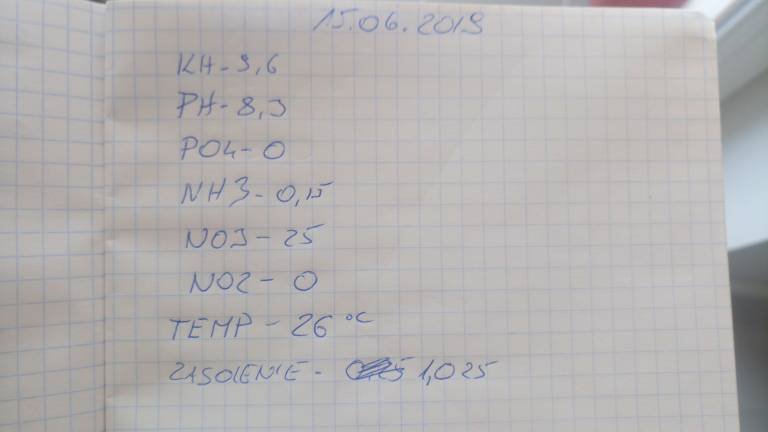 15.06.2019
KH - 9,6
PH - 8,3
PO4 - 0
NH3 - 0,15
NO3 - 25
NO2 - 0
TEMP - 26 °C
ZASOLENIE - 1,025